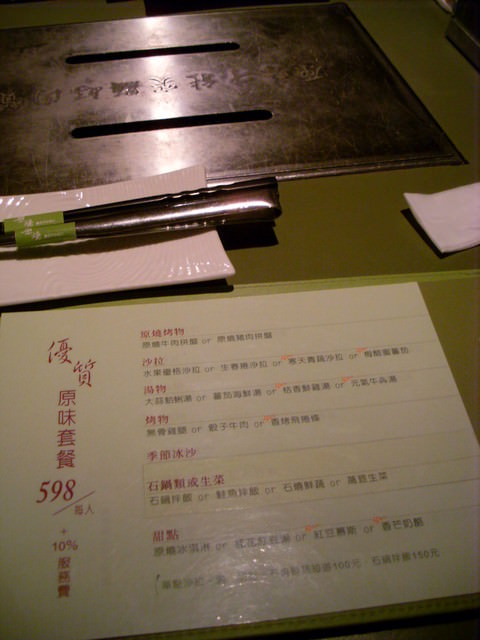 優質
原味套餐
598/每人
+
10%
服務費
原燒烤物
原燒牛肉拼盤 or 原燒豬肉拼盤
沙拉
水果優格沙拉 or 生春捲沙拉 or 寒天青蔬沙拉 or 梅醋蜜蕃茄
湯物
大蒜蛤蜊湯 or 蕃茄海鮮湯 or 桔香鮮雞湯 or 元氣牛犇湯
烤物
無骨雞腿 or 骰子牛肉 or 香烤飛捲條
季節冰沙
石鍋類或生菜
石鍋拌飯 or 鮭魚拌飯 or 石燒鮮蔬 or 萵苣生菜
甜點
原燒冰淇淋 or 紅豆慕斯 or 香芒奶酪
100元 石鍋拌飯150元